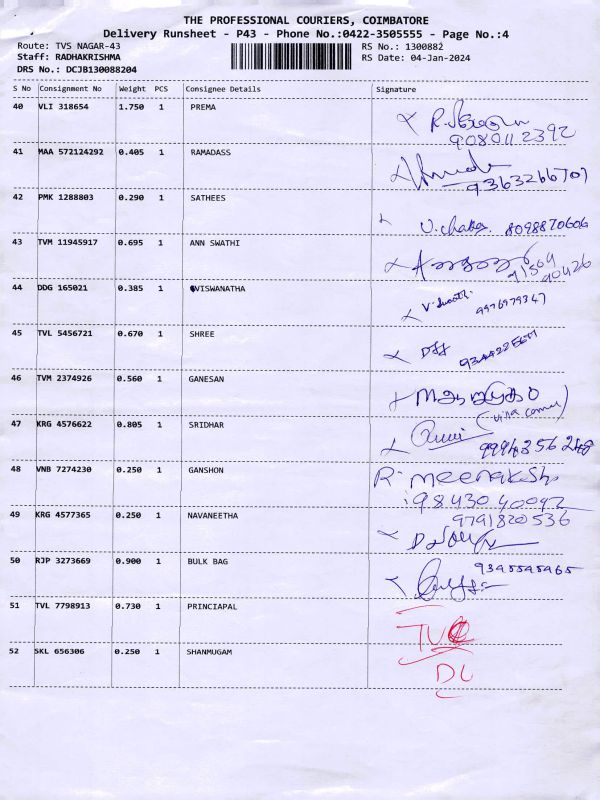 THE PROFESSIONAL COURIERS, COIMBATORE
Delivery Runsheet - P43 - Phone No.:0422-3505555 - Page No.:4
Route: TVS NAGAR-43 RS No.: 1300882
Staff: RADHAKRISHMA RS Date: 04-Jan-2024
DRS No.: DCJB130088204
S No Consignment No Weight PCS Consignee Details Signature
40 VLI 318654 1.750 1 PREMA
9080112392
41 MAA 572124292 0.405 1 RAMADASS
9363266707
42 PMK 1288803 0.290 1 SATHEES
8098870606
43 TVM 11945917 0.695 1 ANN SWATHI
44 DDG 165021 0.385 1 VISWANATHA
9976979347
45 TVL 5456721 0.670 1 SHREE
46 TVM 2374926 0.560 1 GANESAN
47 KRG 4576622 0.805 1 SRIDHAR
9994356248
48 VNB 7274230 0.250 1 GANSHON
R. meenakshi
9843040092
49 KRG 4577365 0.250 1 NAVANEETHA
9791820536
50 RJP 3273669 0.900 1 BULK BAG
9345545465
51 TVL 7798913 0.730 1 PRINCIAPAL
52 SKL 656306 0.250 1 SHANMUGAM
DL